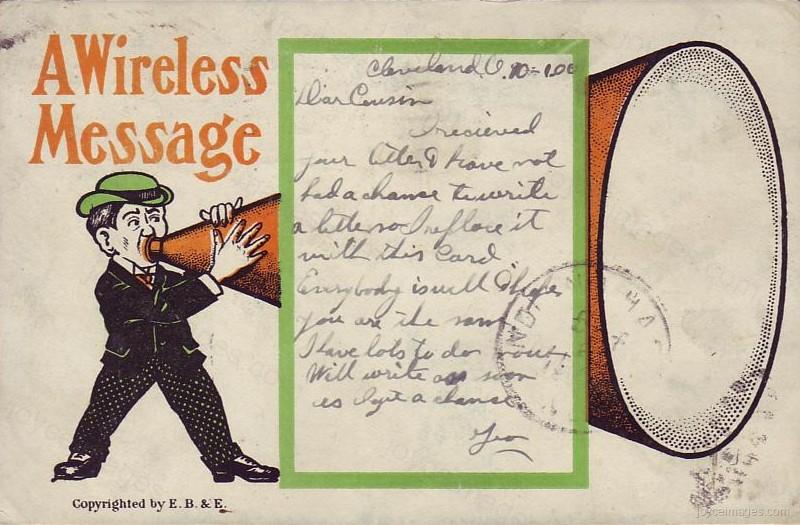 A Wireless
Message
Cleveland, O. 10-1-06
Dear Cousin
I recieved
your letter & have not
had a chance to write
a letter so I replace it
with this Card
Everybody is well & hope
you are the same
I have lots to do
Will write as soon
as I get a chance
Geo
Copyrighted by E. B. & E.